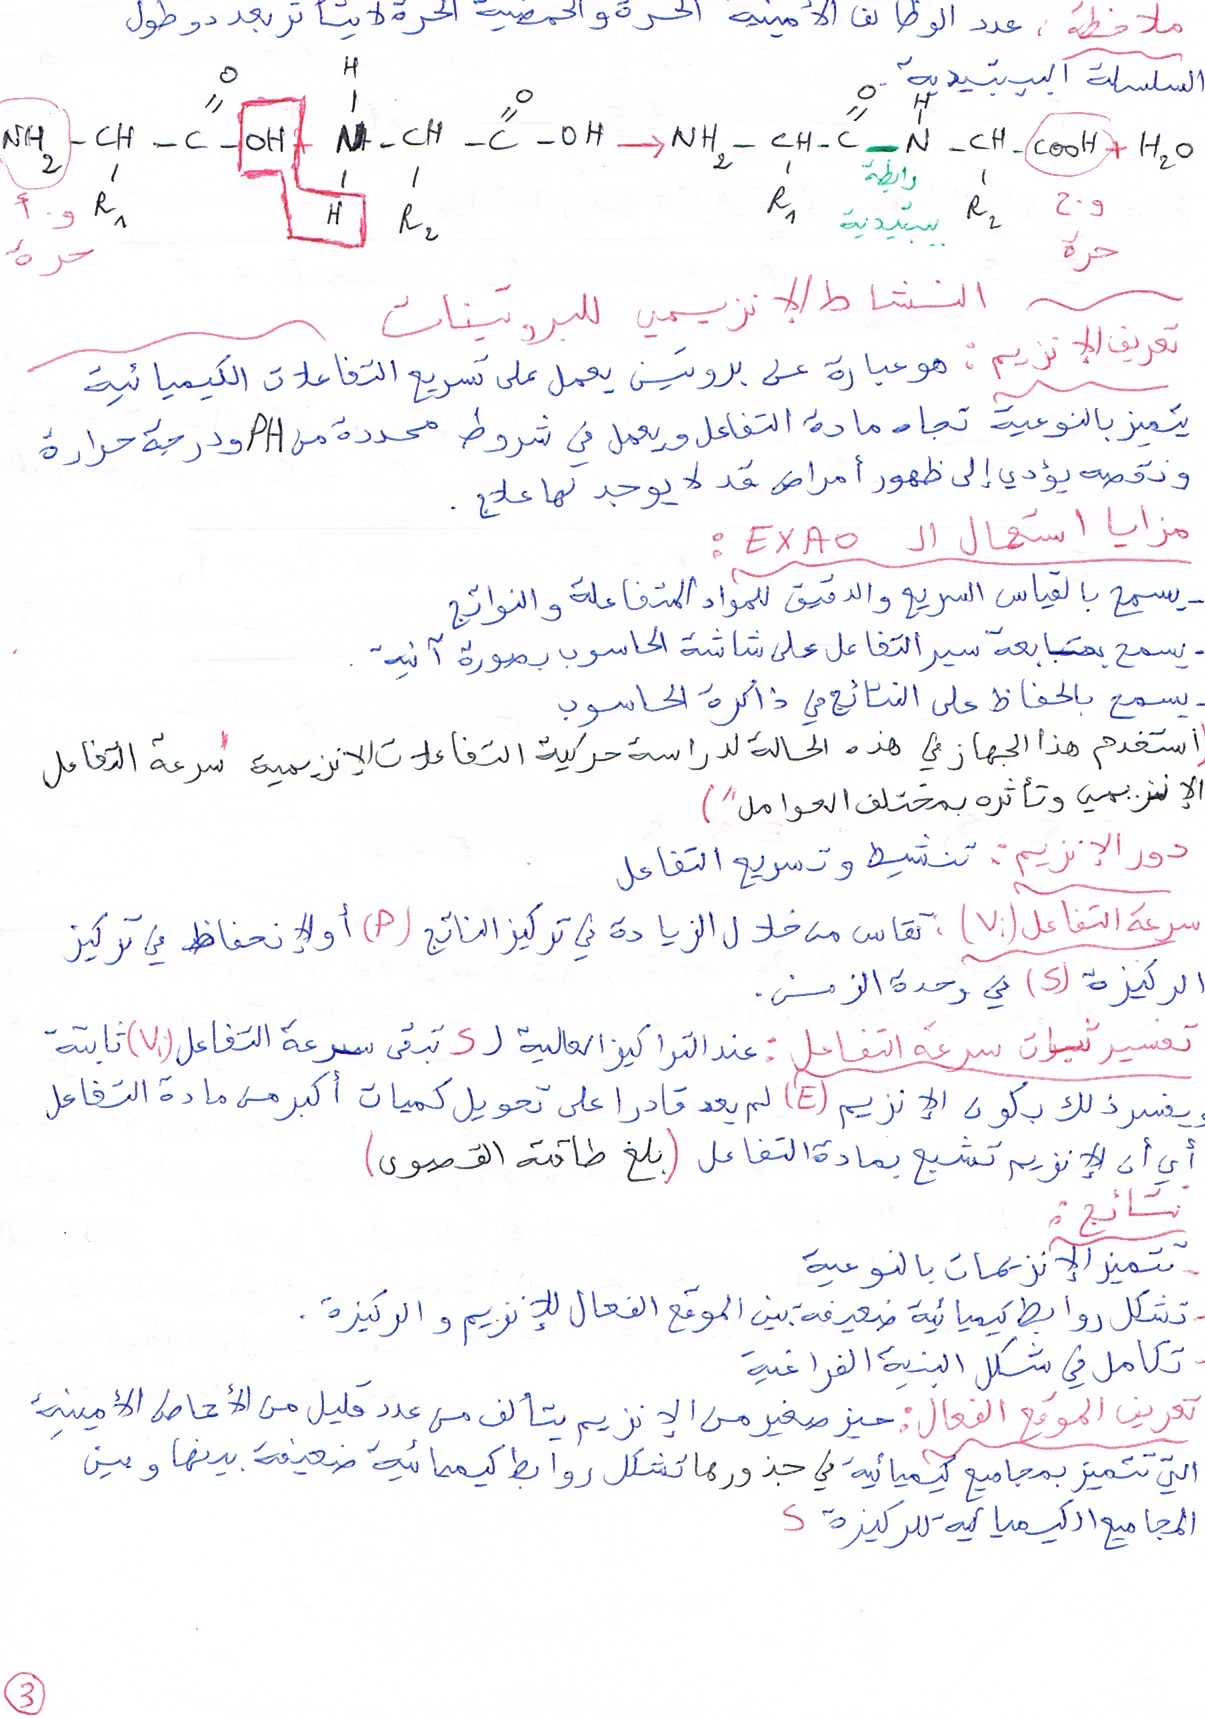 ملاحظة : عدد الوظائف الأمينية الحرة والحمضية الحرة لا يتأثر بعدد و طول
السلسلة الببتيدية.
NH2 - CH - C - OH + N - CH - C - OH → NH2 - CH - C - N - CH - COOH + H2O
O H O O H
R1 H R2 R1 R2
و.أ حرة
رابطة ببتيدية
و.ح حرة
النشاط الإنزيمي للبروتينات
تعريف الإنزيم : هو عبارة عن بروتين يعمل على تسريع التفاعلات الكيميائية
يتميز بالنوعية تجاه مادة التفاعل و يعمل في شروط محددة من PH و درجة حرارة
و نقصه يؤدي إلى ظهور أمراض قد لا يوجد لها علاج .
مزايا استعمال الـ EXAO :
- يسمح بالقياس السريع والدقيق للمواد المتفاعلة والنواتج
- يسمح بمتابعة سير التفاعل على شاشة الحاسوب بصورة آنية .
- يسمح بالحفاظ على النتائج في ذاكرة الحاسوب
(استخدم هذا الجهاز في هذه الحالة لدراسة حركية التفاعلات الإنزيمية "سرعة التفاعل
الإنزيمي وتأثره بمختلف العوامل")
دور الإنزيم : تنشيط و تسريع التفاعل
سرعة التفاعل (Vi) : تقاس من خلال الزيادة في تركيز الناتج (P) أو الإنخفاظ في تركيز
الركيزة (S) في وحدة الزمن .
تفسير ثبات سرعة التفاعل : عند التراكيز العالية لـ S تبقى سرعة التفاعل (Vi) ثابتة
ويفسر ذلك بكون الإنزيم (E) لم يعد قادرا على تحويل كميات أكبر من مادة التفاعل
أي أن الإنزيم تشبع بمادة التفاعل (بلغ طاقته القصوى)
نتائج :
- تتميز الإنزيمات بالنوعية
- تشكل روابط كيميائية ضعيفة بين الموقع الفعال للإنزيم و الركيزة .
- تكامل في شكل البنية الفراغية
تعريف الموقع الفعال : حيز صغير من الإنزيم يتألف من عدد قليل من الأحماض الأمينية
التي تتميز بمجاميع كيميائية في جذورها تشكل روابط كيميائية ضعيفة بينها و بين
المجاميع الكيميائية للركيزة S
3